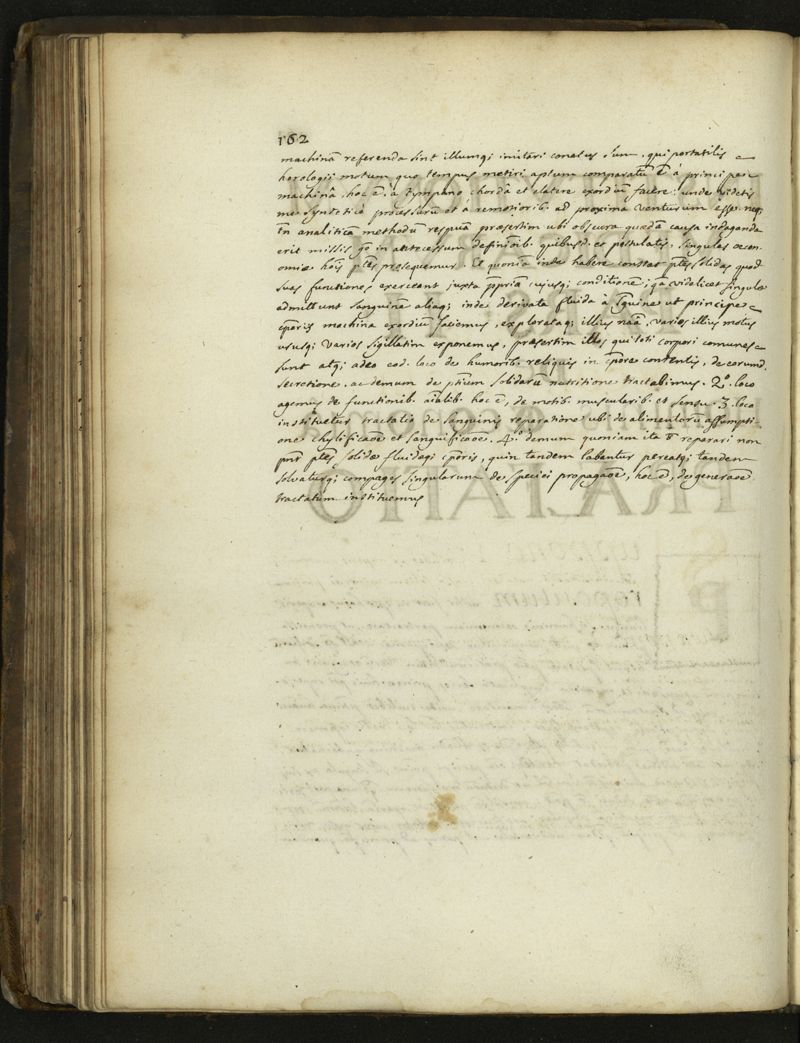 162
machinā referenda sint illumq; imitari conatus sum, qui portatilis
horologii motum quo tempus metiri aptum comparatū ē à principe
machinā, hoc ē, à tympano chordâ et elatere exordiū facere: unde videtis
me syntetica processurū et à remotiorib. ad proxima venturum esse. neq;
tn analiticā methodū respuā præsertim ubi obscura quædā causa indaganda
erit missis go in antecessum definioīb. quibusd. et postulatis. singulas œcon-
omiæ hoīs ptēs prosequemur. Et quoniā inde habere constat ptēs solidas quod
suas functiones exerceant juxta ppriā cujusq; conditionē; qa videlicet singulæ
admittunt sanguinē aliaq; inde derivata fluida à sguine ut principe
cporis machina exordiū faciemus, explorataq; illius naā, varios illius motus
ususq; varios sigillatim exponemus, præsertim illos qui toti corpori comunes
sunt atq; adeo eod. loco de humorib. reliquis in cpore contentis, de eorund.
secretione. ac demum de ptium solidarū nutritione tractabimus. 2.º loco
agemus de functionib. aīalib. hoc ē, de motib. muscularib. et sensu. 3. loco
instituetur tractatio de sanguinis reparatione ubi de alimentorū assumpti-
one chylificaōe et sanguificaōe. 4.º demum quoniam ita reparari non
pnt ptēs solidæ fluidæq; cporis, quin tandem labantur pereatq; tandem
solvaturq; compages singularum de speciei propagaōe, hoc ē, de generaōe
tractatum instituemus